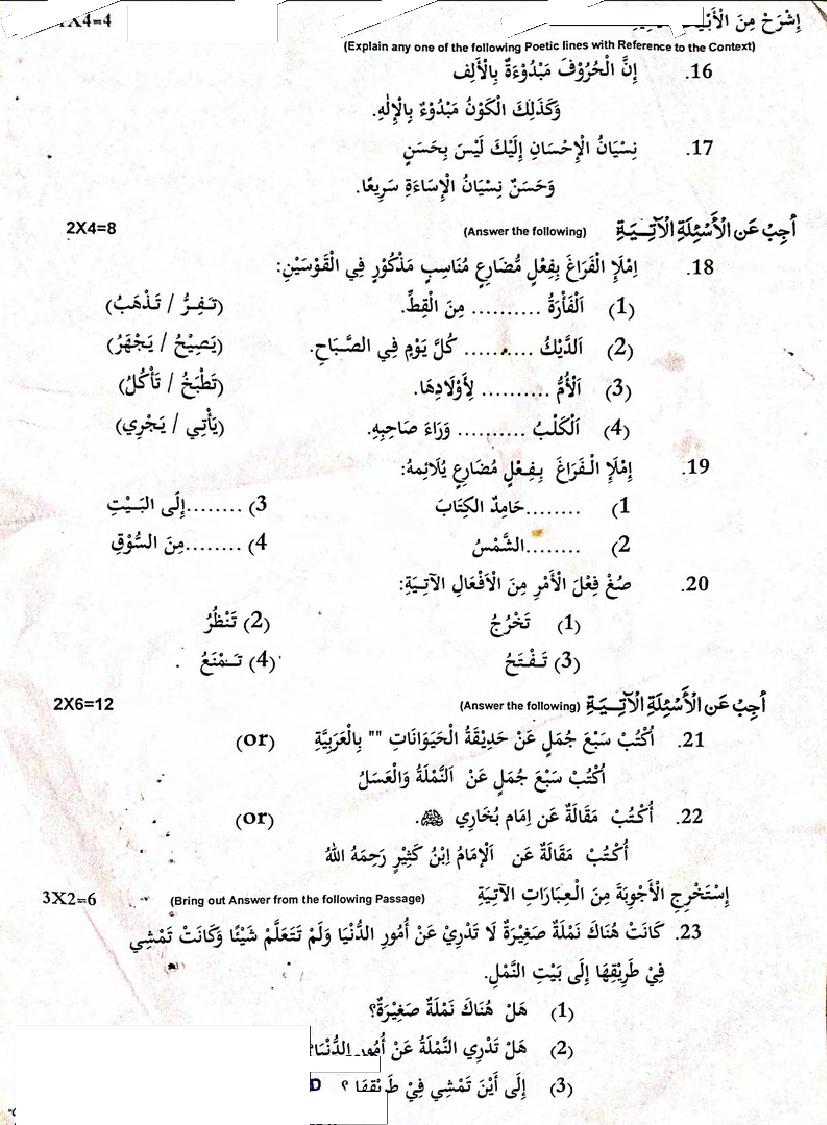 إِشْرَحْ مِنَ
1X4=4
(Explain any one of the following Poetic lines with Reference to the Context)
16. إِنَّ الْحُرُوْفَ مَبْدُوْءَةٌ بِالْأَلِفِ
وَكَذٰلِكَ الْكَوْنُ مَبْدُوْءٌ بِالْإِلٰهِ.
17. نِسْيَانُ الْإِحْسَانِ إِلَيْكَ لَيْسَ بِحَسَنٍ
وَحَسَنٌ نِسْيَانُ الْإِسَاءَةِ سَرِيعًا.
أَجِبْ عَنِ الْأَسْئِلَةِ الْآتِيَةِ (Answer the following) 2X4=8
18. اِمْلَإِ الْفَرَاغَ بِفِعْلٍ مُضَارِعٍ مُنَاسِبٍ مَذْكُوْرٍ فِي الْقَوْسَيْنِ:
(1) اَلْفَأْرَةُ .......... مِنَ الْقِطِّ. (تَفِرُّ / تَذْهَبُ)
(2) اَلدَّيْكُ .......... كُلَّ يَوْمٍ فِي الصَّبَاحِ. (يَصِيْحُ / يَجْهَرُ)
(3) اَلْأُمُّ .......... لِأَوْلَادِهَا. (تَطْبَخُ / تَأْكُلُ)
(4) اَلْكَلْبُ .......... وَرَاءَ صَاحِبِهِ. (يَأْتِي / يَجْرِي)
19. اِمْلَإِ الْفَرَاغَ بِفِعْلٍ مُضَارِعٍ يُلَائِمهُ:
1) ........حَامِدٌ الكِتَابَ 3) ........إِلَى البَيْتِ
2) ........الشَّمْسُ 4) ........مِنَ السُّوْقِ
20. صُغْ فِعْلَ الْأَمْرِ مِنَ الْأَفْعَالِ الآتِيَةِ:
(1) تَخْرُجُ (2) تَنْظُرُ
(3) تَفْتَحُ (4) تَمْنَعُ
أَجِبْ عَنِ الْأَسْئِلَةِ الْآتِيَةِ (Answer the following) 2X6=12
21. أُكْتُبْ سَبْعَ جُمَلٍ عَنْ حَدِيْقَةُ الْحَيَوَانَاتِ "" بِالْعَرَبِيَّةِ (or)
أُكْتُبْ سَبْعَ جُمَلٍ عَنْ اَلنَّمْلَةُ وَالْعَسَلُ
22. أُكْتُبْ مَقَالَةٌ عَنِ اِمَام بُخَارِي ﷺ. (or)
أُكْتُبْ مَقَالَةٌ عَن اَلْإِمَامُ اِبْنُ كَثِيْرٍ رَحِمَهُ اللهُ
إِسْتَخْرِجِ الْأَجْوِبَةَ مِنَ الْعِبَارَاتِ الآتِيَةِ (Bring out Answer from the following Passage) 3X2=6
23. كَانَتْ هُنَاكَ نَمْلَةٌ صَغِيْرَةٌ لَا تَدْرِيْ عَنْ أُمُوْرِ الدُّنْيَا وَلَمْ تَتَعَلَّمْ شَيْئًا وَكَانَتْ تَمْشِي
فِيْ طَرِيْقِهَا إِلَى بَيْتِ النَّمْلِ.
(1) هَلْ هُنَاكَ نَمْلَةٌ صَغِيْرَةٌ؟
(2) هَلْ تَدْرِي النَّمْلَةُ عَنْ أُمُوْرِ الدُّنْيَا؟
(3) إِلَى أَيْنَ تَمْشِي فِيْ ؟